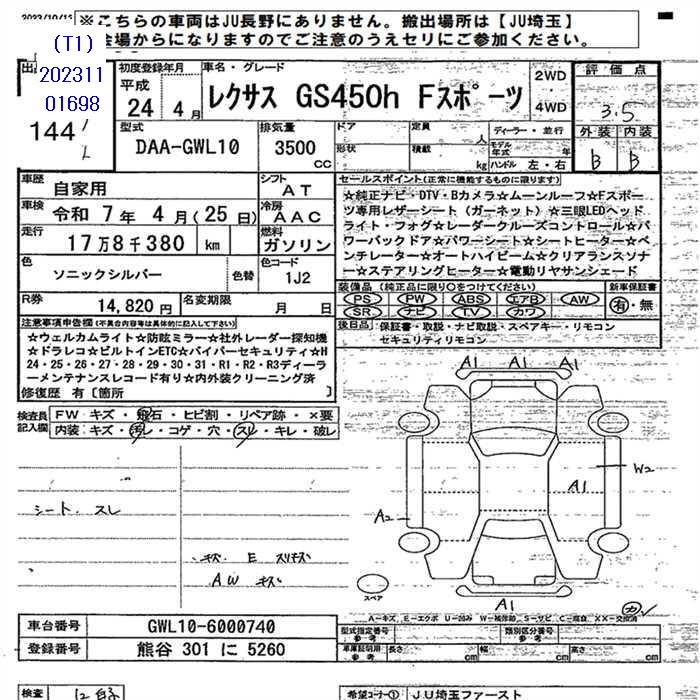 ※こちらの車両はJU長野にありません。搬出場所は【JU埼玉】
会場からになりますのでご注意のうえセリにご参加ください。
(T1)
202311
01698
144
初度登録年月
平成
24 4月
車名・グレード
レクサス GS450h Fスポーツ
2WD
・
4WD
評価点
3.5
外装 内装
B B
型式
DAA-GWL10
排気量
3500
cc
ドア
形状
定員
人
積載
kg
ディーラー・並行
モデル年式 年
ハンドル 左・右
車歴
自家用
シフト
AT
車検
令和 7年 4月(25日)
冷房
AAC
走行
17万8千380 km
燃料
ガソリン
色
ソニックシルバー
色替
色コード
1J2
R券
14,820円
名変期限
月 日
セールスポイント(正常に機能するものに限ります)
☆純正ナビ・DTV・Bカメラ☆ムーンルーフ☆Fスポー
ツ専用レザーシート(ガーネット)☆三眼LEDヘッド
ライト・フォグ☆レーダークルーズコントロール☆パ
ワーバックドア☆パワーシート☆シートヒーター☆ベ
ンチレーター☆オートハイビーム☆クリアランスソナ
ー☆ステアリングヒーター☆電動リヤサンシェード
装備品(純正品に限り○をつけてください)
PS PW ABS エアB AW
SR ナビ TV カワ
新車保証書
有・無
後日品
保証書・取説・ナビ取説・スペアキー・リモコン
セキュリティリモコン
注意事項申告欄(不具合内容等は具体的に記入して下さい)
☆ウェルカムライト☆防眩ミラー☆社外レーダー探知機
☆ドラレコ☆ビルトインETC☆バイパーセキュリティ☆H
24・25・26・27・28・29・30・31・R1・R2・R3ディーラ
ーメンテナンスレコード有り☆内外装クリーニング済
修復歴 有〔箇所 〕
検査員記入欄
FW キズ・飛石・ヒビ割・リペア跡・×要
内装:キズ・汚レ・コゲ・穴・スレ・キレ・破レ
シート、スレ
キズ E スリキズ
AW キズ
A1 A1 A1
W2
A1
A2
A1
スペア
カ
A-キズ E-エクボ U-凹み W-補修跡 S-サビ C-腐食 XX-交換済
車台番号
GWL10-6000740
登録番号
熊谷 301 に 5260
型式指定番号
参考
類別区分番号
参考
車庫証明用
参考
長さ cm
幅 cm
高さ cm
検査
希望コーナー① JU埼玉ファースト